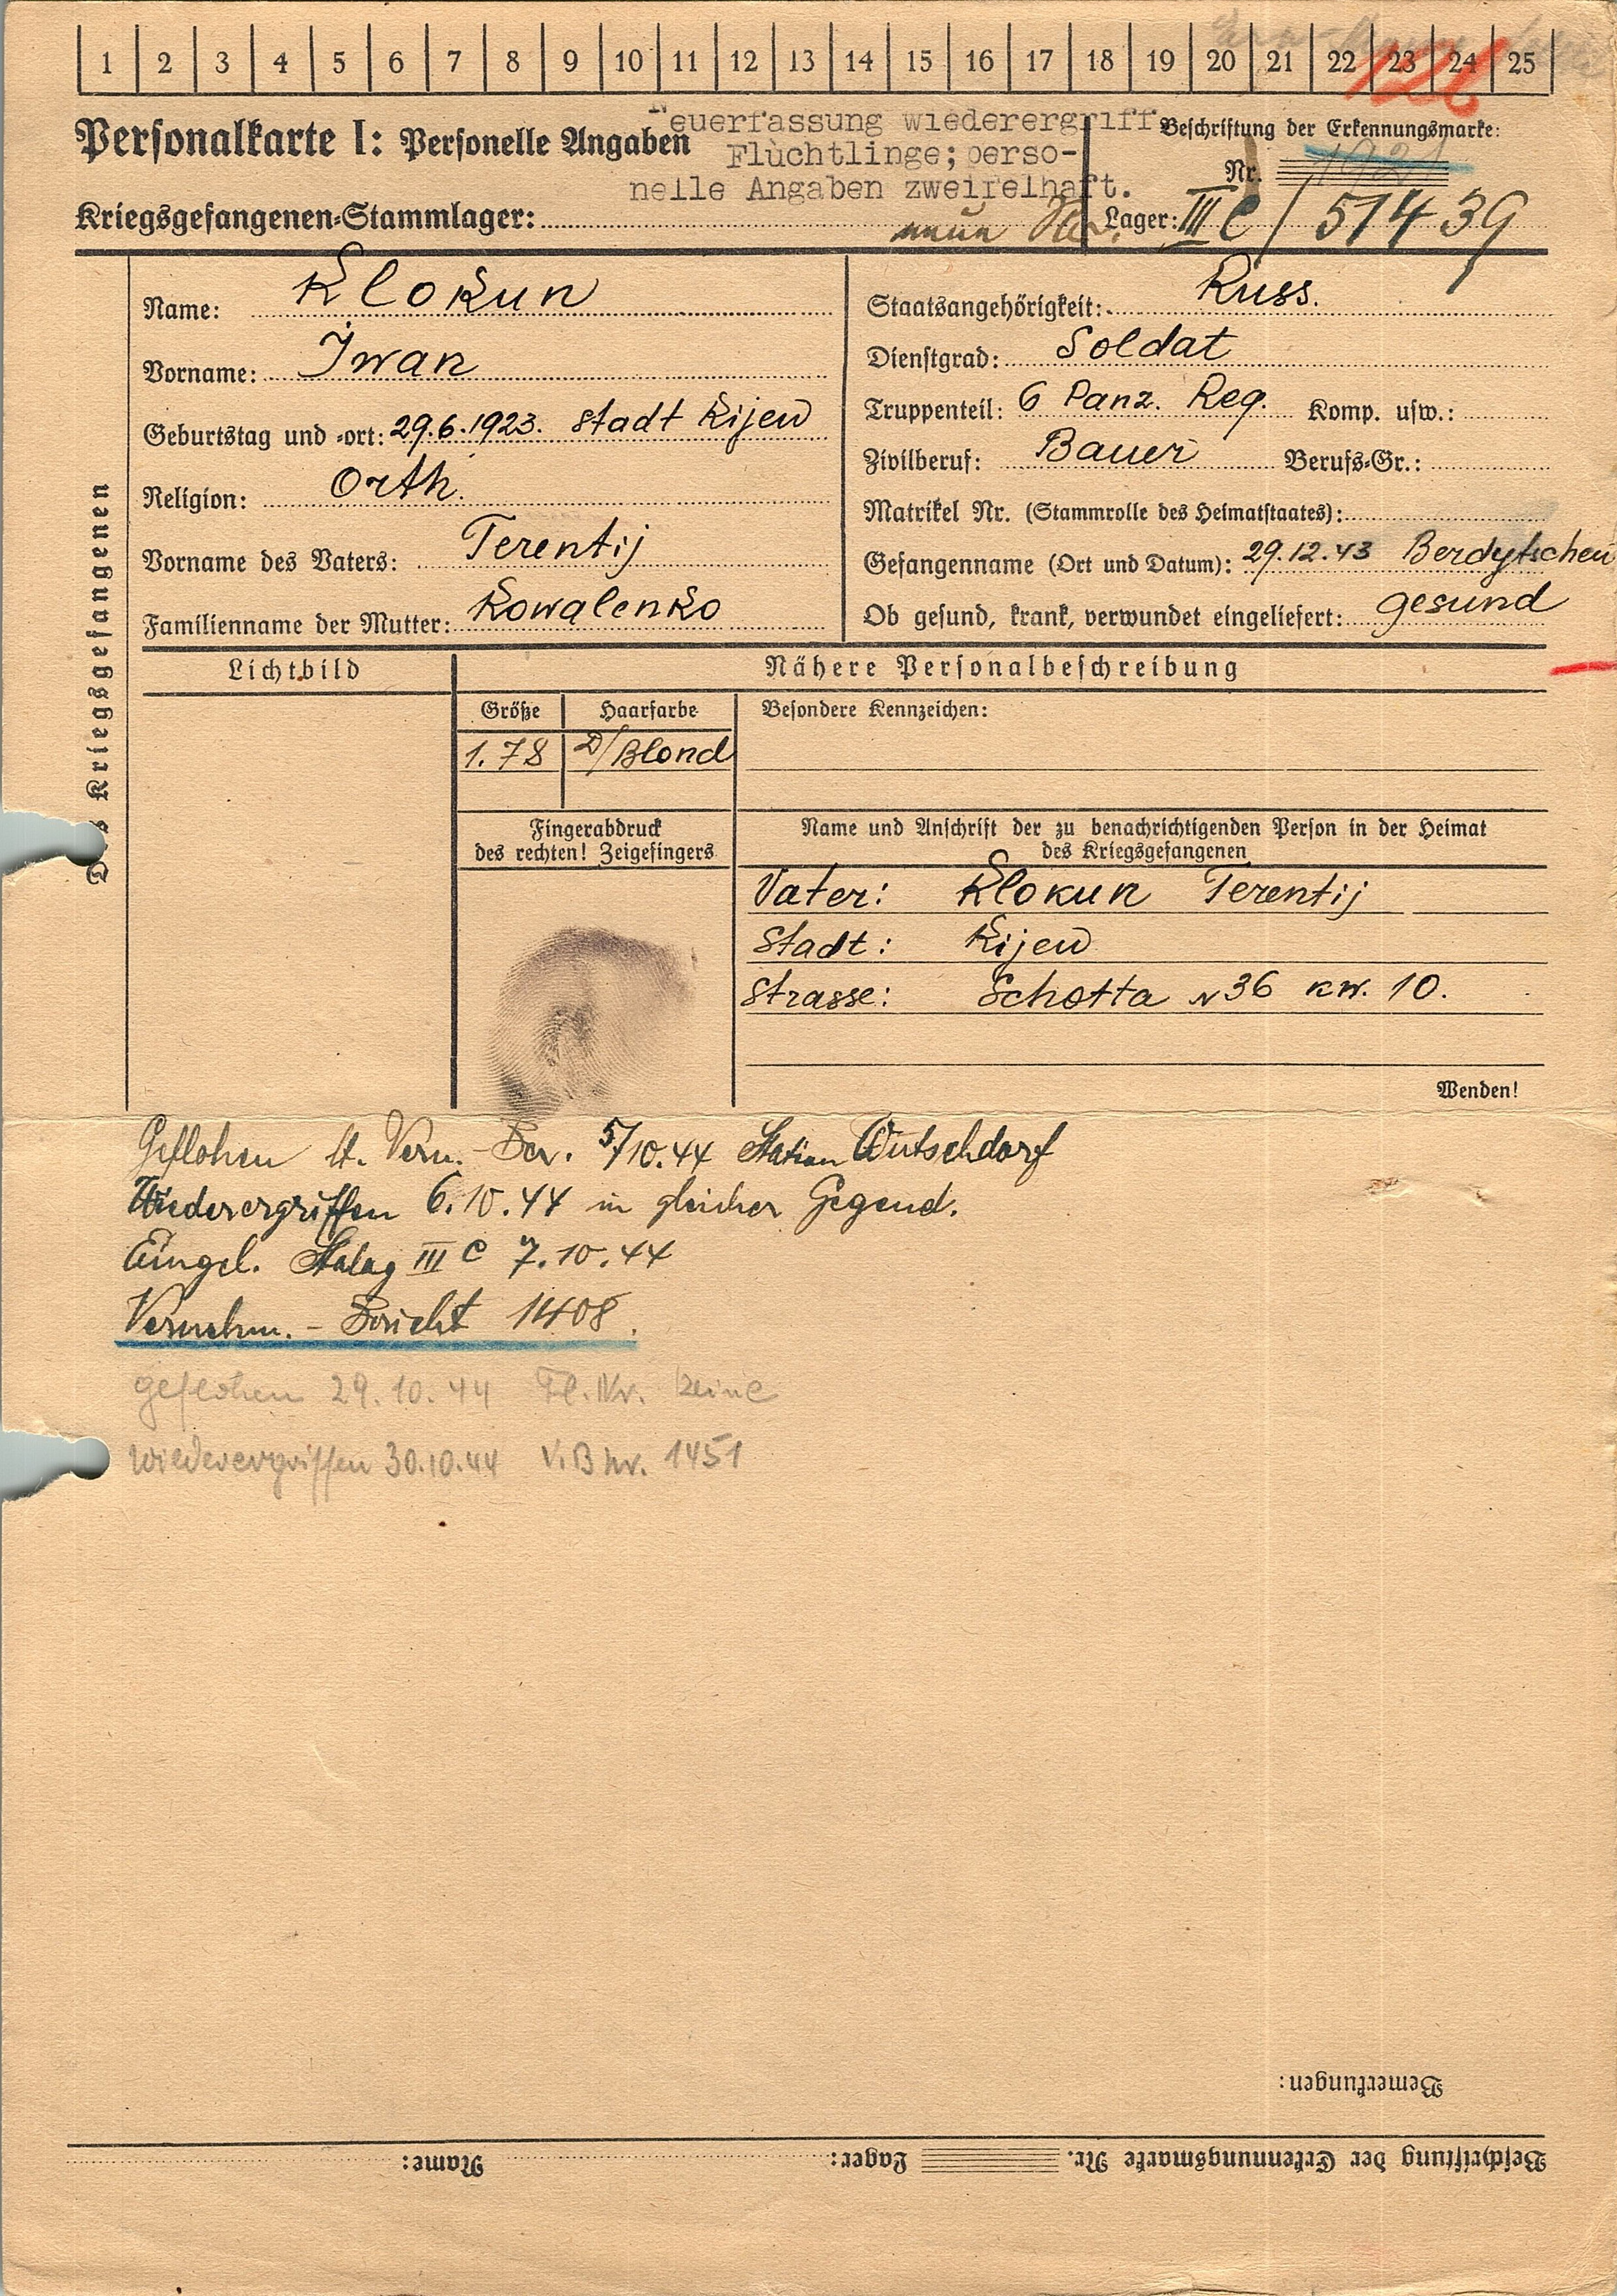 1 2 3 4 5 6 7 8 9 10 11 12 13 14 15 16 17 18 19 20 21 22 23 24 25
126
Personalkarte I: Personelle Angaben
Neuerfassung wiederergriff.
Flüchtlinge; perso-
nelle Angaben zweifelhaft.
Beschriftung der Erkennungsmarke:
Nr.
Kriegsgefangenen-Stammlager:
Lager: III C / 51439
Name: Klokun
Vorname: Iwan
Geburtstag und -ort: 29.6.1923. Stadt Kijew
Religion: Orth.
Vorname des Vaters: Terentij
Familienname der Mutter: Kowalenko
Staatsangehörigkeit: Russ.
Dienstgrad: Soldat
Truppenteil: 6 Panz. Reg. Komp. usw.:
Zivilberuf: Bauer Berufs-Gr.:
Matrikel Nr. (Stammrolle des Heimatstaates):
Gefangenname (Ort und Datum): 29.12.43 Berdytschew
Ob gesund, krank, verwundet eingeliefert: gesund
Kriegsgefangenen
Lichtbild
Nähere Personalbeschreibung
Größe Haarfarbe Besondere Kennzeichen:
1.78 D/Blond
Fingerabdruck
des rechten! Zeigefingers
Name und Anschrift der zu benachrichtigenden Person in der Heimat
des Kriegsgefangenen
Vater: Klokun Terentij
Stadt: Kijew
Strasse: Schotta N 36 kw. 10.
Wenden!
Geflohen lt. Vern.-Ber. 5/10.44 Station Wutschdorf
Wiederergriffen 6.10.44 in gleicher Gegend.
Eingel. Stalag III C 7.10.44
Vernehm.-Bericht 1408.
geflohen 29.10.44 Fl. Nr. keine
wiederergriffen 30.10.44 V.B nr. 1451
Bemerkungen:
Beschriftung der Erkennungsmarke Nr. Lager: Name: